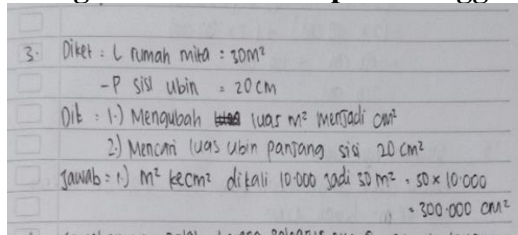 3. Diket : L rumah mita : 30m²
- P sisi ubin = 20 cm
Dit : 1.) Mengubah luas m² menjadi cm²
2.) Mencari luas ubin panjang sisi 20 cm²
Jawab = 1.) m² kecm² dikali 10.000 jadi 30 m² = 30 × 10.000
= 300.000 cm²